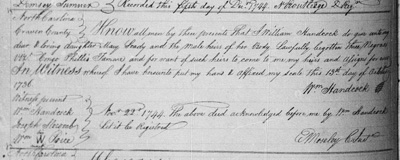 Recorded this fifth day of Decr. 1744.
North Carolina
Craven County Know all men by these presents That I William Handcock do give unto my
dear & loving daughter Mary Shady and the Male heirs of her Body Lawfully begotten Three Negroes
and for want of such heirs to come to me my heirs and Assigns for ever
In Witness whereof I have hereunto put my hand & affixed my Seale this 13th day of October
1736 Wm Handcock
Witness present
Wm Handcock Novr. 22d 1744 The above Deed acknowledged before me by Wm Handcock
Joseph Let it be Registered
Wm
North Carolina